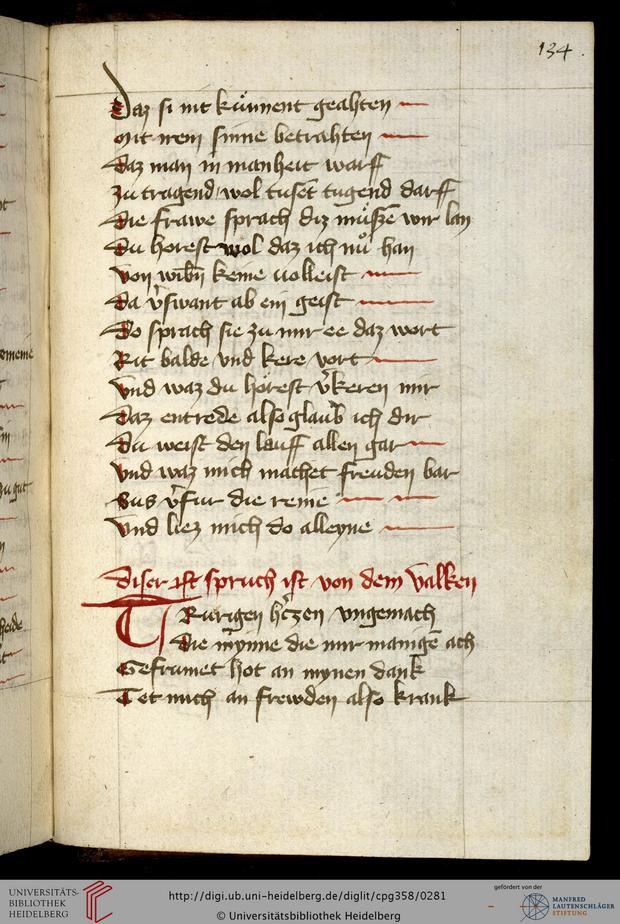 134.
Daz si nit kůnnent geahten
Mit irem sinne betrahten
Daz man in manheit warff
Zu tragend wol tusēt tugend darff
Die frawe sprach diz můszē wir lan
Du horest wol daz ich nů han
Von wibn̄ keine volleist
Da v̓swant ab ein geist
Do sprach sie zu mir ee daz wort
Rit balde vnd kere vort
Vnd waz du hörest v̓keren mir
Daz entrede also glaub ich dir
Du weist den lauff allen gar
Vnd waz mich machet freuden bar
Sus v̓fur die reine
Vnd liez mich do alleyne
Diser ist spruch ist von dem valken
TRurigen h̓czen vngemach
Die mynne die mir manigē ach
Gefrumet hot an mynen dank
Tet mich an frewden also krank
UNIVERSITÄTS-
BIBLIOTHEK
HEIDELBERG
http://digi.ub.uni-heidelberg.de/diglit/cpg358/0281
© Universitätsbibliothek Heidelberg
gefördert von der
MANFRED
LAUTENSCHLÄGER
STIFTUNG